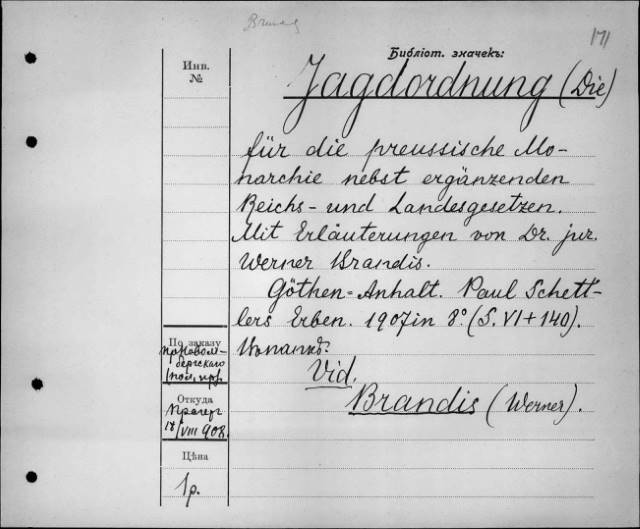 171
Библіот. значекъ:
Инв.
№
Jagdordnung (Die)
für die preussische Mo-
narchie nebst ergänzenden
Reichs- und Landesgesetzen.
Mit Erläuterungen von Dr. jur.
Werner Brandis.
Göthen-Anhalt. Paul Schett-
lers Erben. 1907 in 8° (S. VI + 140).
Vid.
Brandis (Werner).
По заказу
Откуда
18/VIII 908.
Цѣна
1 р.